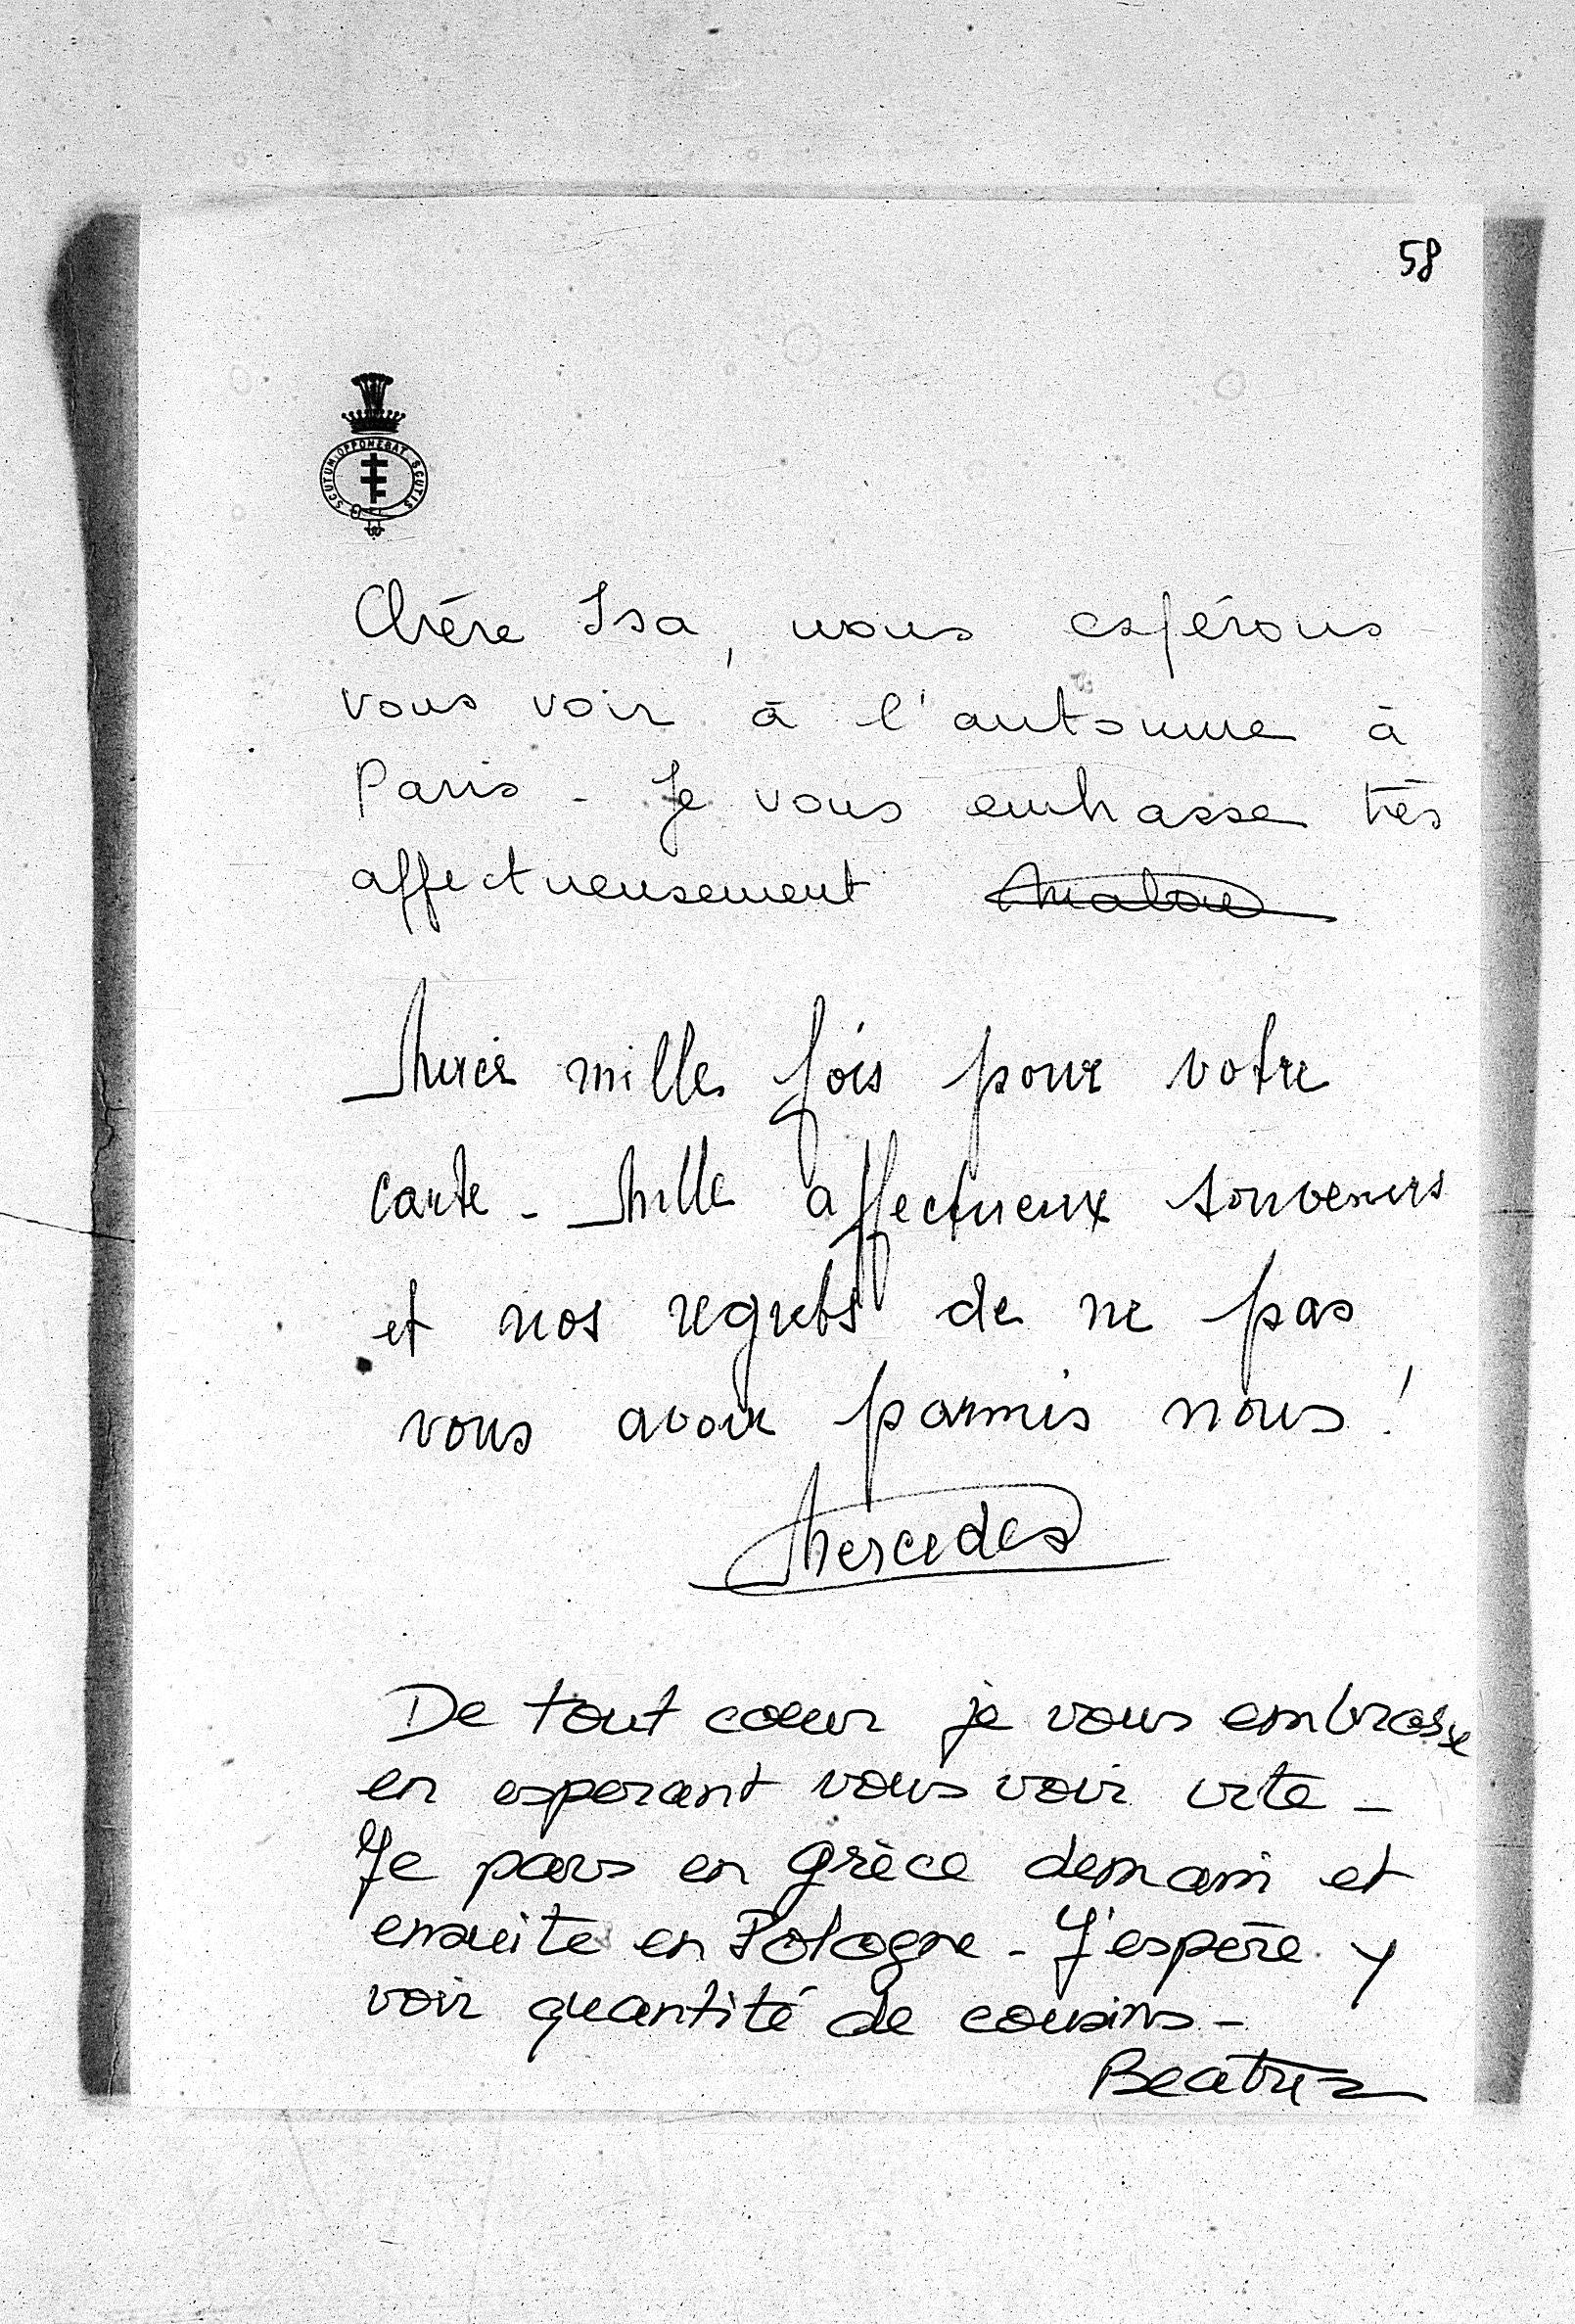 58
SCUTUM OPPONEBAT SCUTIS
Chère Isa, nous espérons
vous voir à l'automne à
Paris - Je vous embrasse très
affectueusement Malou
Merci mille fois pour votre
carte - Mille affectueux souvenirs
et nos regrets de ne pas
vous avoir parmis nous !
Mercedes
De tout coeur je vous embrasse
en esperant vous voir vite -
Je pars en Grèce demain et
ensuite en Pologne - J'espère y
voir quantité de cousins -
Beatriz